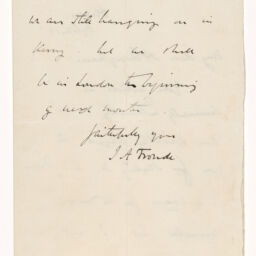 We are still hanging on in
Kerry. but we shall
be in London the beginning
of next month
faithfully yours
J A Froude